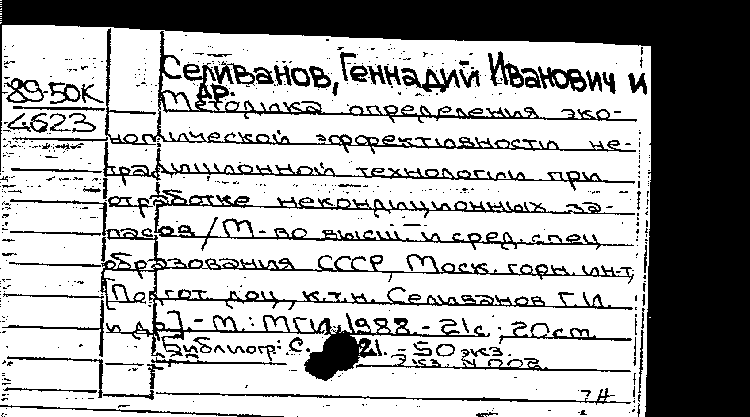 Селиванов, Геннадий Иванович и
др.
89-50К
4623
Методика определения эко-
номической эффективности не-
традиционной технологии при
отработке некондиционных за-
пасов / М-во высш. и сред. спец.
образования СССР, Моск. горн. ин-т;
[Подгот. доц., к.т.н. Селиванов Г.И.
и др.]. - М.: МГИ, 1988. - 21с.; 20см.
Библиогр: с. 21. - 50 экз.
Экз. N 002.